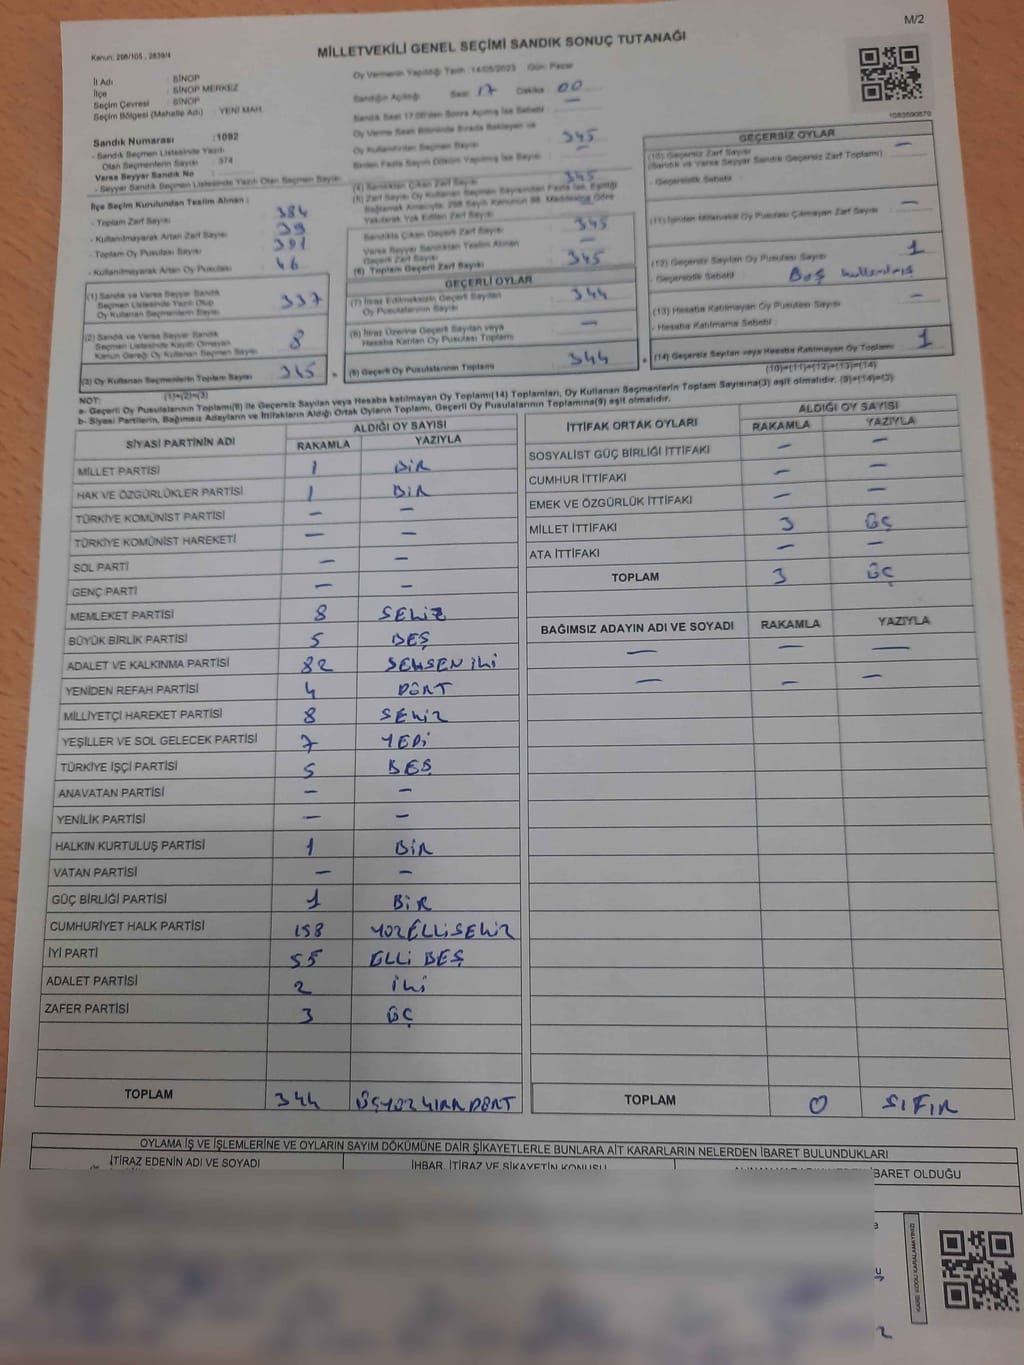 M/2
Kanun: 298/105, 2839/4
MİLLETVEKİLİ GENEL SEÇİMİ SANDIK SONUÇ TUTANAĞI
İl Adı : SİNOP
İlçe : SİNOP MERKEZ
Seçim Çevresi : SİNOP
Seçim Bölgesi (Mahalle Adı) : YENİ MAH.
Oy Vermenin Yapıldığı Tarih :14/05/2023 Gün: Pazar
Sandığın Açıldığı Saat: 17 Dakika: 00
Sandık Saat 17:00'den Sonra Açılmış İse Sebebi: —
Oy Verme Saati Bitiminde Sırada Bekleyen ve
Oy Kullandırılan Seçmen Sayısı: 345
Birden Fazla Sayım Döküm Yapılmış İse Sayısı: —
1083590870
Sandık Numarası :1092
- Sandık Seçmen Listesinde Yazılı
Olan Seçmenlerin Sayısı : 374
Varsa Seyyar Sandık No :
- Seyyar Sandık Seçmen Listesinde Yazılı Olan Seçmen Sayısı:
İlçe Seçim Kurulundan Teslim Alınan :
- Toplam Zarf Sayısı : 384
- Kullanılmayarak Artan Zarf Sayısı : 39
- Toplam Oy Pusulası Sayısı : 391
- Kullanılmayarak Artan Oy Pusulası : 46
(1) Sandık ve Varsa Seyyar Sandık
Seçmen Listesinde Yazılı Olup
Oy Kullanan Seçmenlerin Sayısı : 337
(2) Sandık ve Varsa Seyyar Sandık
Seçmen Listesinde Kayıtlı Olmayan
Kanun Gereği Oy Kullanan Seçmen Sayısı : 8
(3) Oy Kullanan Seçmenlerin Toplam Sayısı : 345
(1)+(2)=(3)
(4) Sandıktan Çıkan Zarf Sayısı : 345
(5) Zarf Sayısı Oy Kullanan Seçmen Sayısından Fazla İse, Eşitliği
Sağlamak Amacıyla, 298 Sayılı Kanunun 98. Maddesine Göre
Yakılarak Yok Edilen Zarf Sayısı
Sandıkta Çıkan Geçerli Zarf Sayısı : 345
Varsa Seyyar Sandıktan Teslim Alınan
Geçerli Zarf Sayısı : —
(6) Toplam Geçerli Zarf Sayısı : 345
GEÇERLİ OYLAR
(7) İtiraz Edilmeksizin Geçerli Sayılan
Oy Pusulasının Sayısı : 344
(8) İtiraz Üzerine Geçerli Sayılan veya
Hesaba Katılan Oy Pusulası Toplamı : —
(9) Geçerli Oy Pusulalarının Toplamı : 344
GEÇERSİZ OYLAR
(10) Geçersiz Zarf Sayısı
(Sandık ve Varsa Seyyar Sandık Geçersiz Zarf Toplamı) : —
- Geçersizlik Sebebi :
(11) İçinden Milletvekili Oy Pusulası Çıkmayan Zarf Sayısı : —
(12) Geçersiz Sayılan Oy Pusulası Sayısı : 1
- Geçersizlik Sebebi : Boş kullanılmış
(13) Hesaba Katılmayan Oy Pusulası Sayısı : —
- Hesaba Katılmama Sebebi :
(14) Geçersiz Sayılan veya Hesaba Katılmayan Oy Toplamı : 1
(10)+(11)+(12)+(13)=(14)
NOT:
a- Geçerli Oy Pusulalarının Toplamı(9) ile Geçersiz Sayılan veya Hesaba katılmayan Oy Toplamı(14) Toplamları, Oy Kullanan Seçmenlerin Toplam Sayısına(3) eşit olmalıdır. (9)+(14)=(3)
b- Siyasi Partilerin, Bağımsız Adayların ve İttifakların Aldığı Ortak Oyların Toplamı, Geçerli Oy Pusulalarının Toplamına(9) eşit olmalıdır.
SİYASİ PARTİNİN ADI ALDIĞI OY SAYISI
RAKAMLA YAZIYLA
MİLLET PARTİSİ 1 BİR
HAK VE ÖZGÜRLÜKLER PARTİSİ 1 BİR
TÜRKİYE KOMÜNİST PARTİSİ — —
TÜRKİYE KOMÜNİST HAREKETİ — —
SOL PARTİ — —
GENÇ PARTİ — —
MEMLEKET PARTİSİ 8 SEKİZ
BÜYÜK BİRLİK PARTİSİ 5 BEŞ
ADALET VE KALKINMA PARTİSİ 82 SEKSEN İKİ
YENİDEN REFAH PARTİSİ 4 DÖRT
MİLLİYETÇİ HAREKET PARTİSİ 8 SEKİZ
YEŞİLLER VE SOL GELECEK PARTİSİ 7 YEDİ
TÜRKİYE İŞÇİ PARTİSİ 5 BEŞ
ANAVATAN PARTİSİ — —
YENİLİK PARTİSİ — —
HALKIN KURTULUŞ PARTİSİ 1 BİR
VATAN PARTİSİ — —
GÜÇ BİRLİĞİ PARTİSİ 1 BİR
CUMHURİYET HALK PARTİSİ 158 YÜZELLİSEKİZ
İYİ PARTİ 55 ELLİ BEŞ
ADALET PARTİSİ 2 İKİ
ZAFER PARTİSİ 3 ÜÇ
TOPLAM 344 ÜÇYÜZ KIRK DÖRT
İTTİFAK ORTAK OYLARI ALDIĞI OY SAYISI
RAKAMLA YAZIYLA
SOSYALİST GÜÇ BİRLİĞİ İTTİFAKI — —
CUMHUR İTTİFAKI — —
EMEK VE ÖZGÜRLÜK İTTİFAKI — —
MİLLET İTTİFAKI 3 ÜÇ
ATA İTTİFAKI — —
TOPLAM 3 ÜÇ
BAĞIMSIZ ADAYIN ADI VE SOYADI RAKAMLA YAZIYLA
— — —
— — —
TOPLAM 0 SIFIR
OYLAMA İŞ VE İŞLEMLERİNE VE OYLARIN SAYIM DÖKÜMÜNE DAİR ŞİKAYETLERLE BUNLARA AİT KARARLARIN NELERDEN İBARET BULUNDUKLARI
İTİRAZ EDENİN ADI VE SOYADI İHBAR, İTİRAZ VE ŞİKAYETİN KONUSU BARET OLDUĞU
KARE KODU KARALAMAYINIZ!